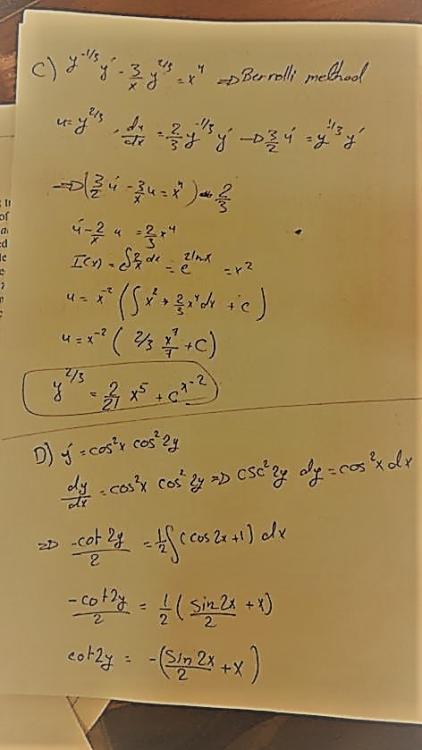 C) y^{-1/3} y' - 3/x y^{2/3} = x^4 => Berrolli method
u = y^{2/3}, du/dx = 2/3 y^{-1/3} y' → 3/2 u' = y^{1/3} y'
=> (3/2 u' - 3/x u = x^4) * 2/3
u' - 2/x u = 2/3 x^4
I(x) = e^{∫ 2/x dx} = e^{2lnx} = x^2
u = x^{-2} (∫ x^2 * 2/3 x^4 dx + c)
u = x^{-2} (2/3 x^7/7 + C)
y^{2/3} = 2/21 x^5 + c^{x-2}
D) y' = cos^2x cos^2 2y
dy/dx = cos^2x cos^2 2y => csc^2 2y dy = cos^2x dx
=> -cot2y/2 = 1/2 ∫ (cos2x+1) dx
-cot2y/2 = 1/2 (sin2x/2 + x)
cot2y = -(sin2x/2 + x)